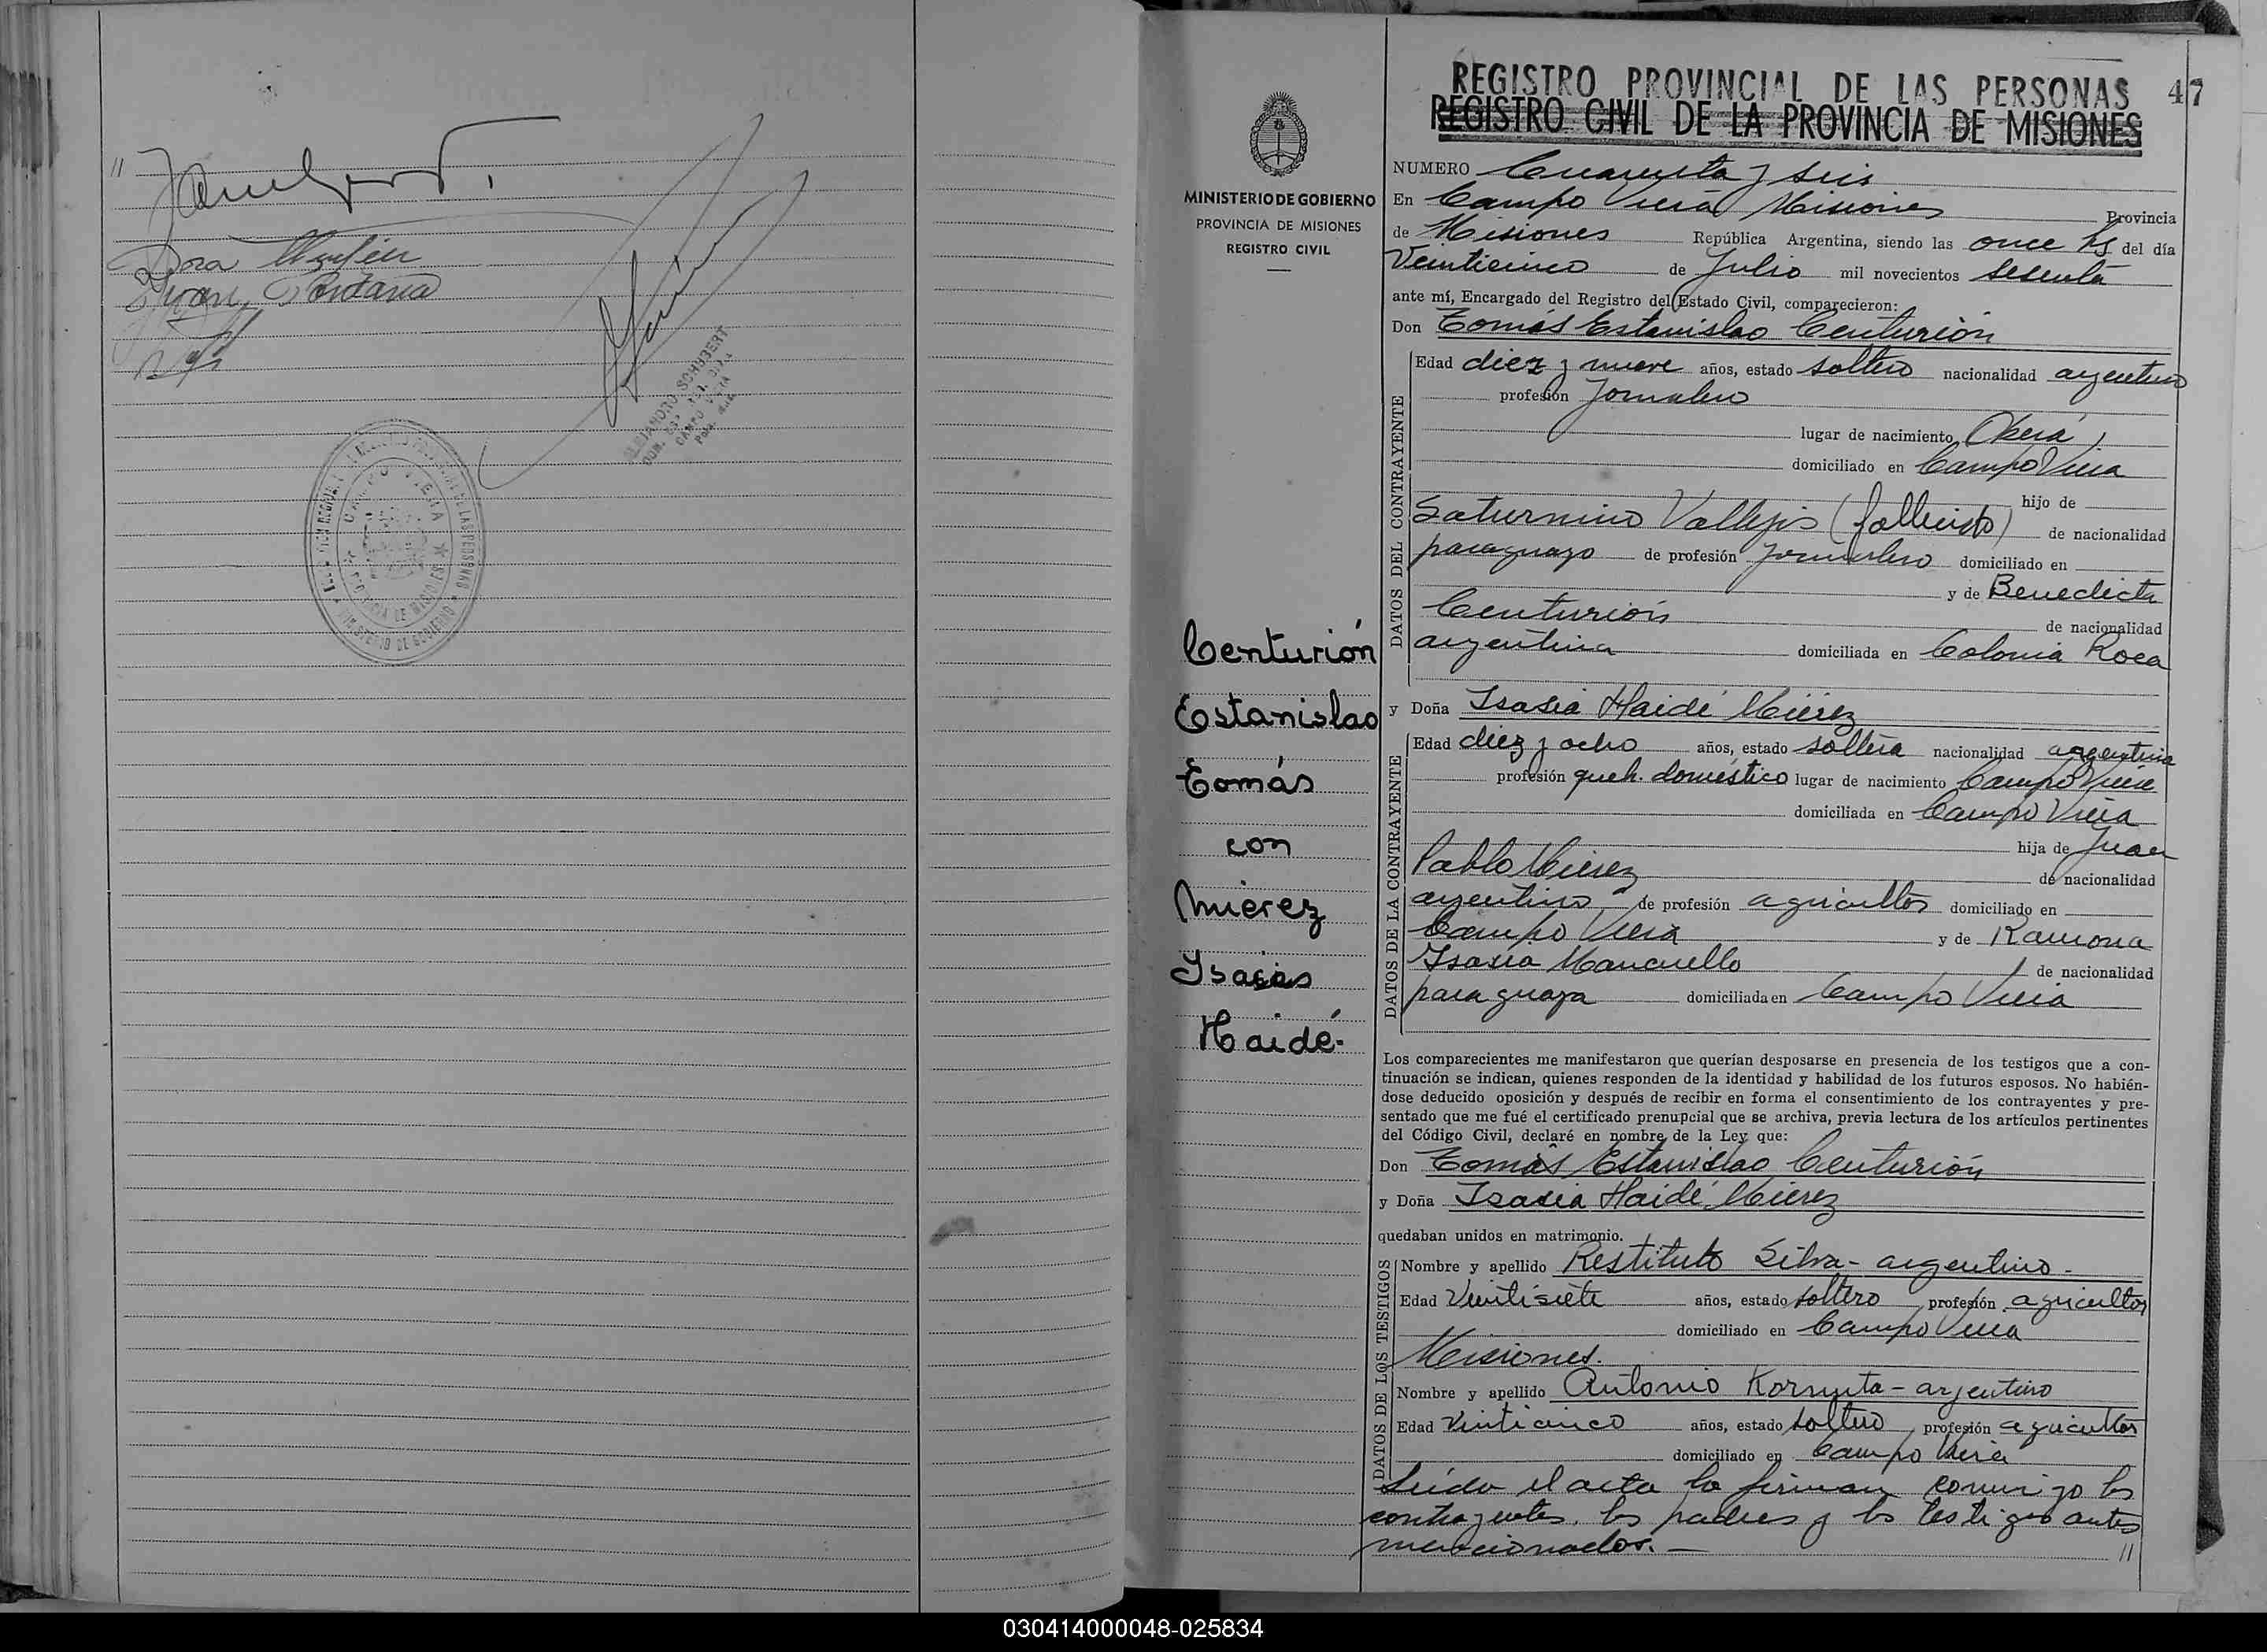 //
Dora
Juan
ALEJANDRO SCHUBERT
CAMPO VIERA
PROVINCIA DE MISIONES
MINISTERIO DE GOBIERNO
47
REGISTRO PROVINCIAL DE LAS PERSONAS
REGISTRO CIVIL DE LA PROVINCIA DE MISIONES
MINISTERIO DE GOBIERNO
PROVINCIA DE MISIONES
REGISTRO CIVIL
Centurión
Estanislao
Tomás
con
Mierez
Isasia
Haidé.-
NUMERO Cuarenta y seis
En Campo Viera Misiones Provincia
de Misiones República Argentina, siendo las once hs del día
Veinticinco de Julio mil novecientos sesenta
ante mí, Encargado del Registro del Estado Civil, comparecieron:
Don Tomás Estanislao Centurión
DATOS DEL CONTRAYENTE
Edad diez y nueve años, estado soltero nacionalidad argentino
profesión Jornalero
lugar de nacimiento Oberá,
domiciliado en Campo Viera
hijo de
Saturnino Vallejos (fallecido) de nacionalidad
paraguayo de profesión Jornalero domiciliado en
y de Benedicta
Centurión de nacionalidad
argentina domiciliada en Colonia Roca
y Doña Isasia Haidé Mierez
DATOS DE LA CONTRAYENTE
Edad diez y ocho años, estado soltera nacionalidad argentina
profesión queh. doméstico lugar de nacimiento Campo Viera
domiciliada en Campo Viera
hija de Juan
Pablo Mierez de nacionalidad
argentino de profesión agricultor domiciliado en
Campo Viera y de Ramona
Isasia Mancuello de nacionalidad
paraguaya domiciliada en Campo Viera
Los comparecientes me manifestaron que querían desposarse en presencia de los testigos que a con-
tinuación se indican, quienes responden de la identidad y habilidad de los futuros esposos. No habién-
dose deducido oposición y después de recibir en forma el consentimiento de los contrayentes y pre-
sentado que me fué el certificado prenupcial que se archiva, previa lectura de los artículos pertinentes
del Código Civil, declaré en nombre de la Ley que:
Don Tomás Estanislao Centurión
y Doña Isasia Haidé Mierez
quedaban unidos en matrimonio.
DATOS DE LOS TESTIGOS
Nombre y apellido Restituto Silva - argentino -
Edad Veintisiete años, estado soltero profesión agricultor
domiciliado en Campo Viera
Misiones.
Nombre y apellido Antonio Kornuta - argentino
Edad Veinticinco años, estado soltero profesión agricultor
domiciliado en Campo Viera
Leída el acta la firman conmigo los
contrayentes, los padres y los testigos antes
mencionados.- //
030414000048-025834